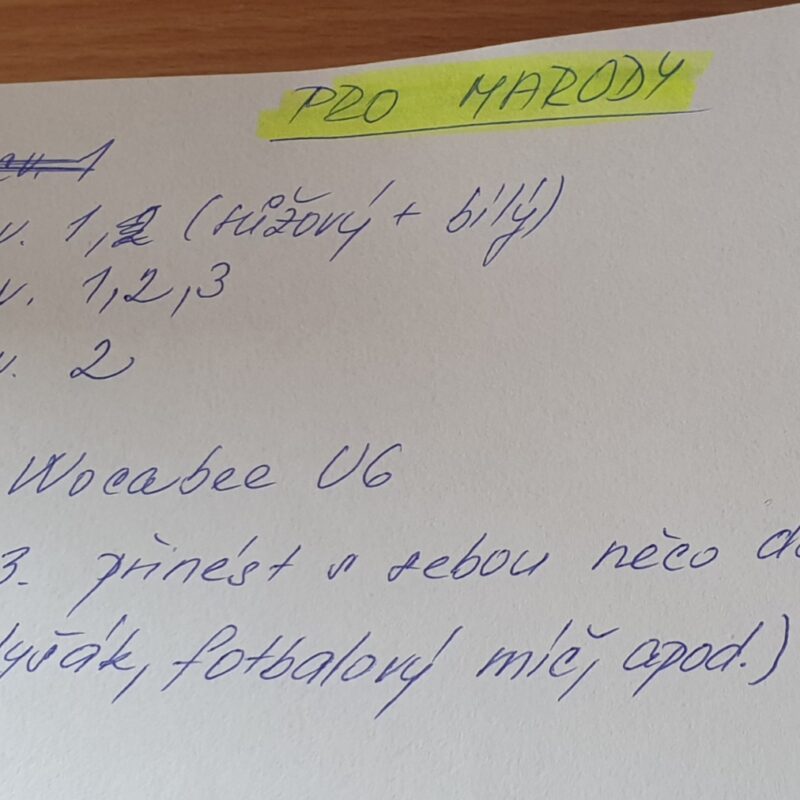 PRO MARODY
cv. 1
v. 1,2 (růžový + bílý)
v. 1,2,3
v. 2
Wocabee U6
3. přinést s sebou něco do
lyšák, fotbalový míč, apod.)